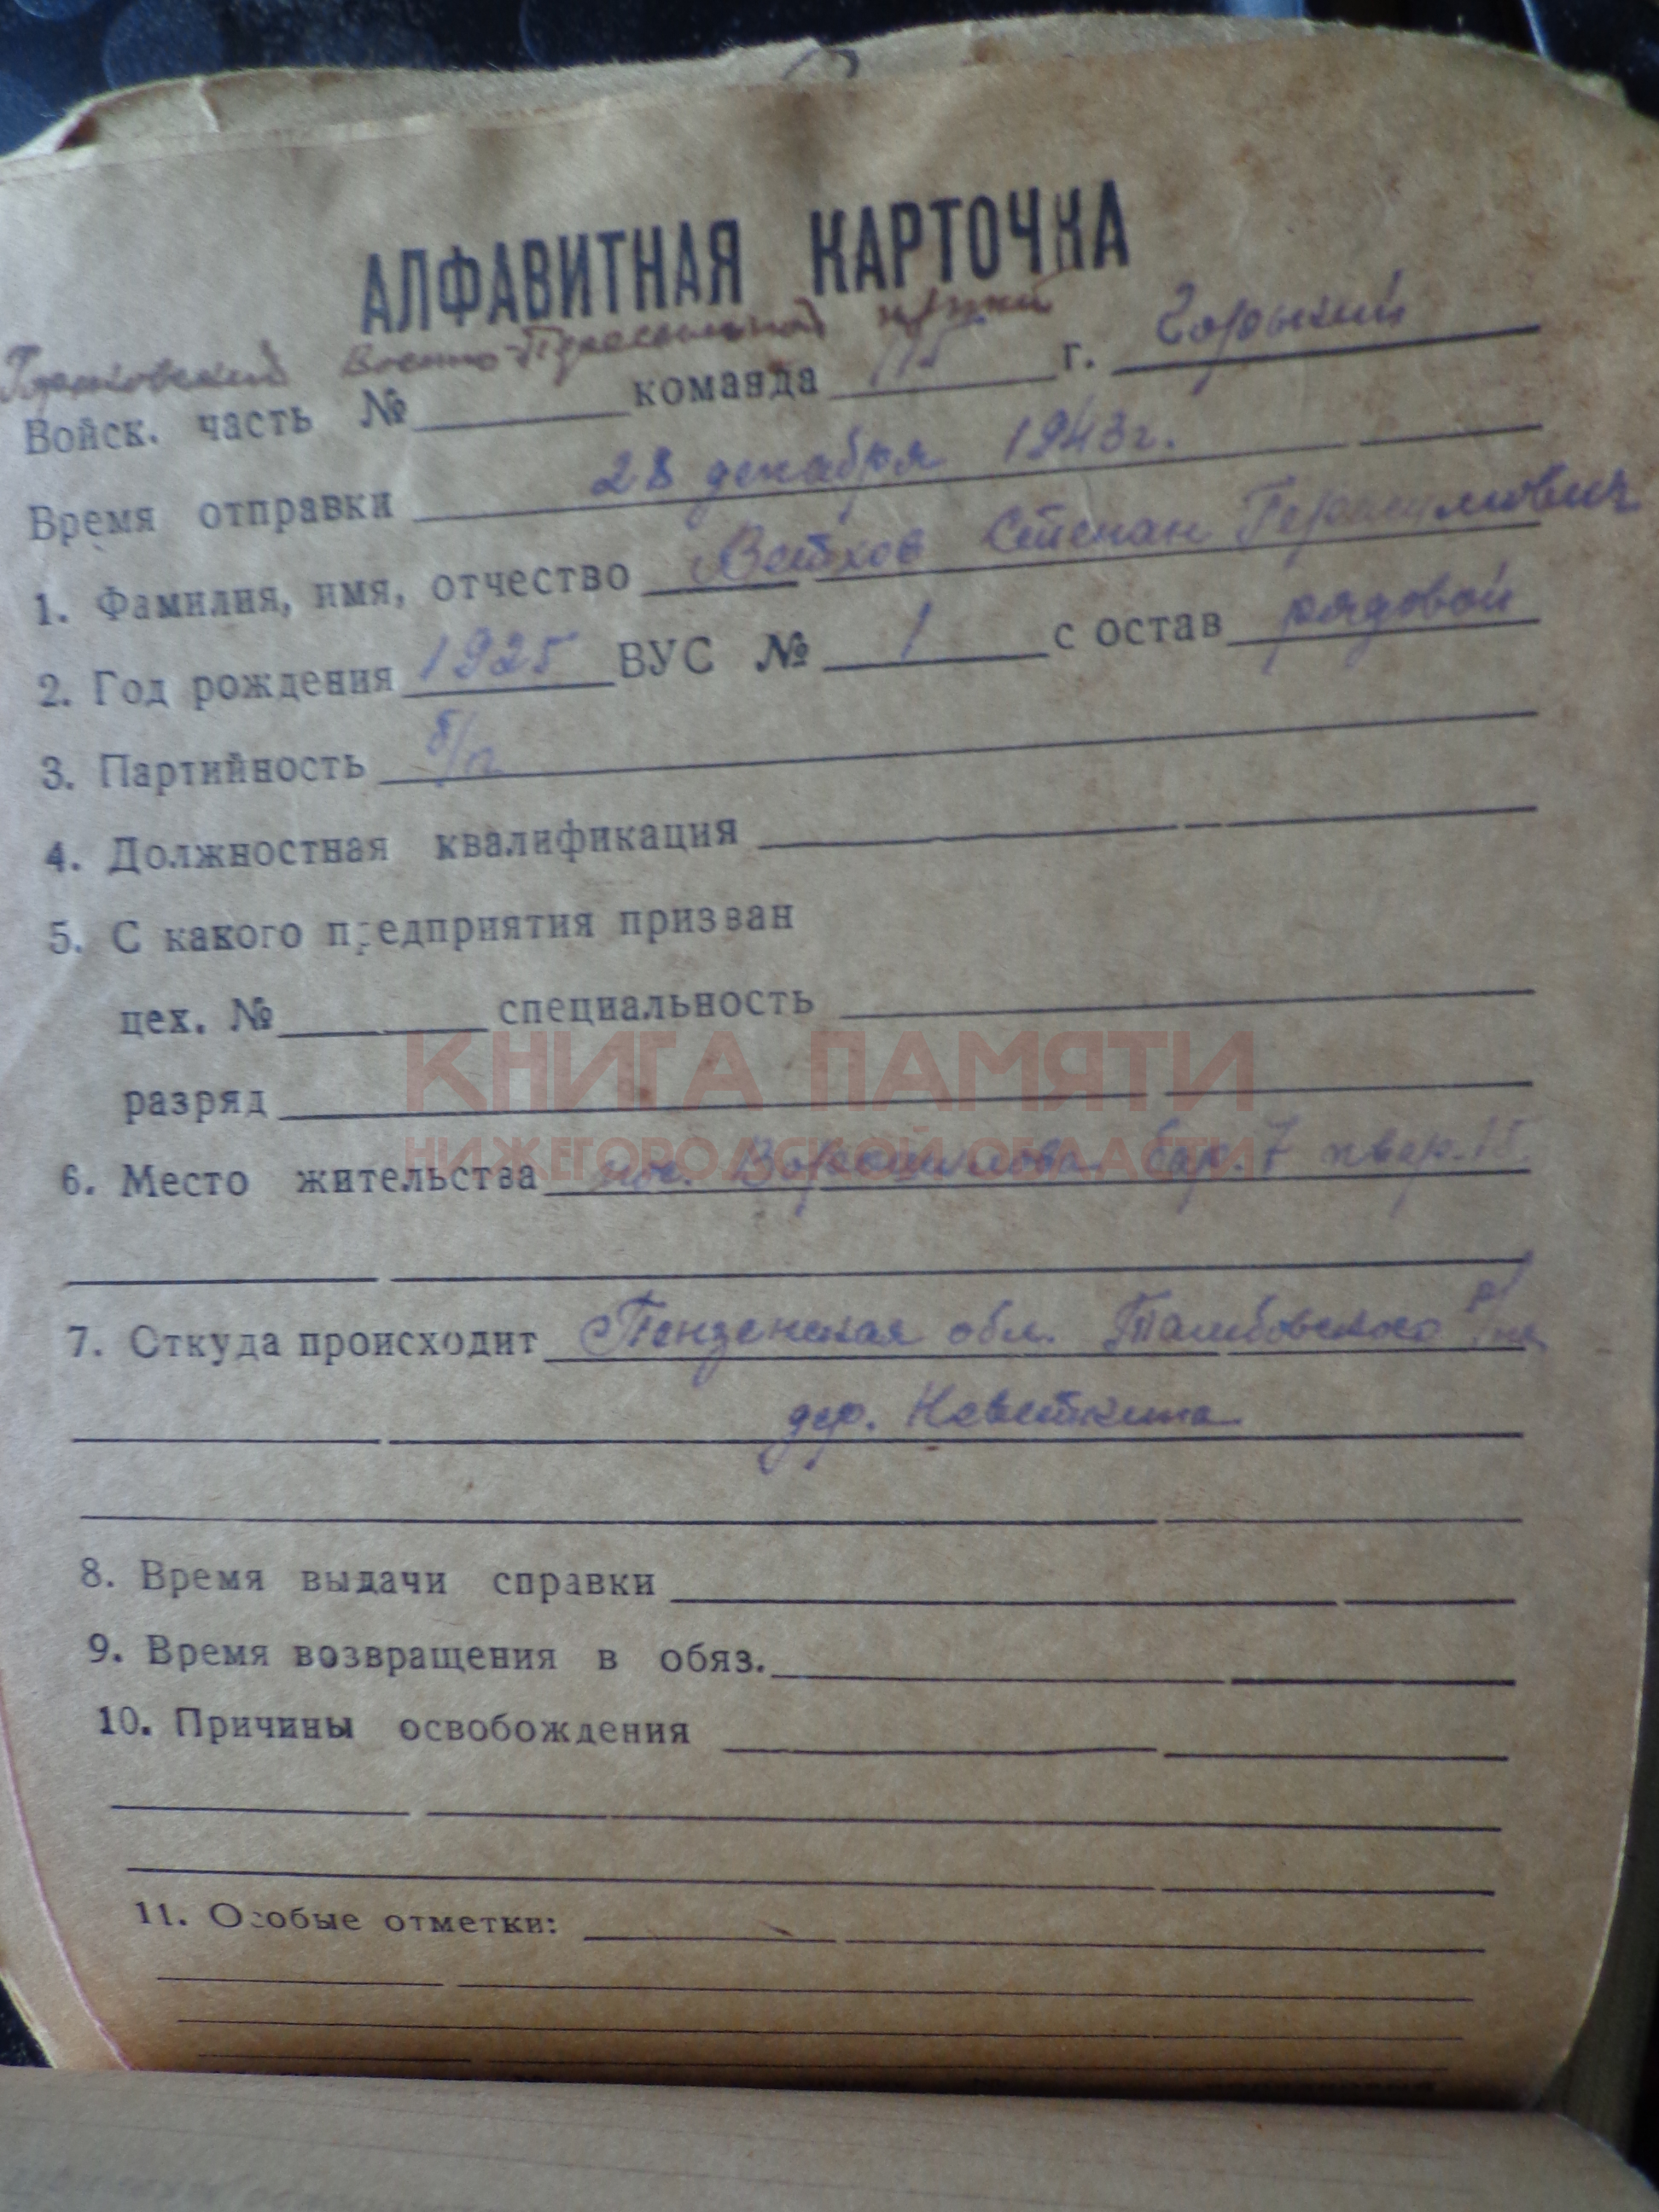 АЛФАВИТНАЯ КАРТОЧКА
Горьковский Военно-Пересыльной пункт
Войск. часть № команда 115 г. Горький
Время отправки 28 декабря 1943г.
1. Фамилия, имя, отчество Ветхов Степан
2. Год рождения 1925 ВУС № 1 с остав рядовой
3. Партийность б/п
4. Должностная квалификация
5. С какого предприятия призван
цех. № специальность
КНИГА ПАМЯТИ
разряд
НИЖЕГОРОДСКОЙ ОБЛАСТИ
6. Место жительства пос. Ворошилова бар. 7 квар. 15.
7. Откуда происходит Пензенская обл. Тамбовского
дер.
8. Время выдачи справки
9. Время возвращения в обяз.
10. Причины освобождения
11. Особые отметки: